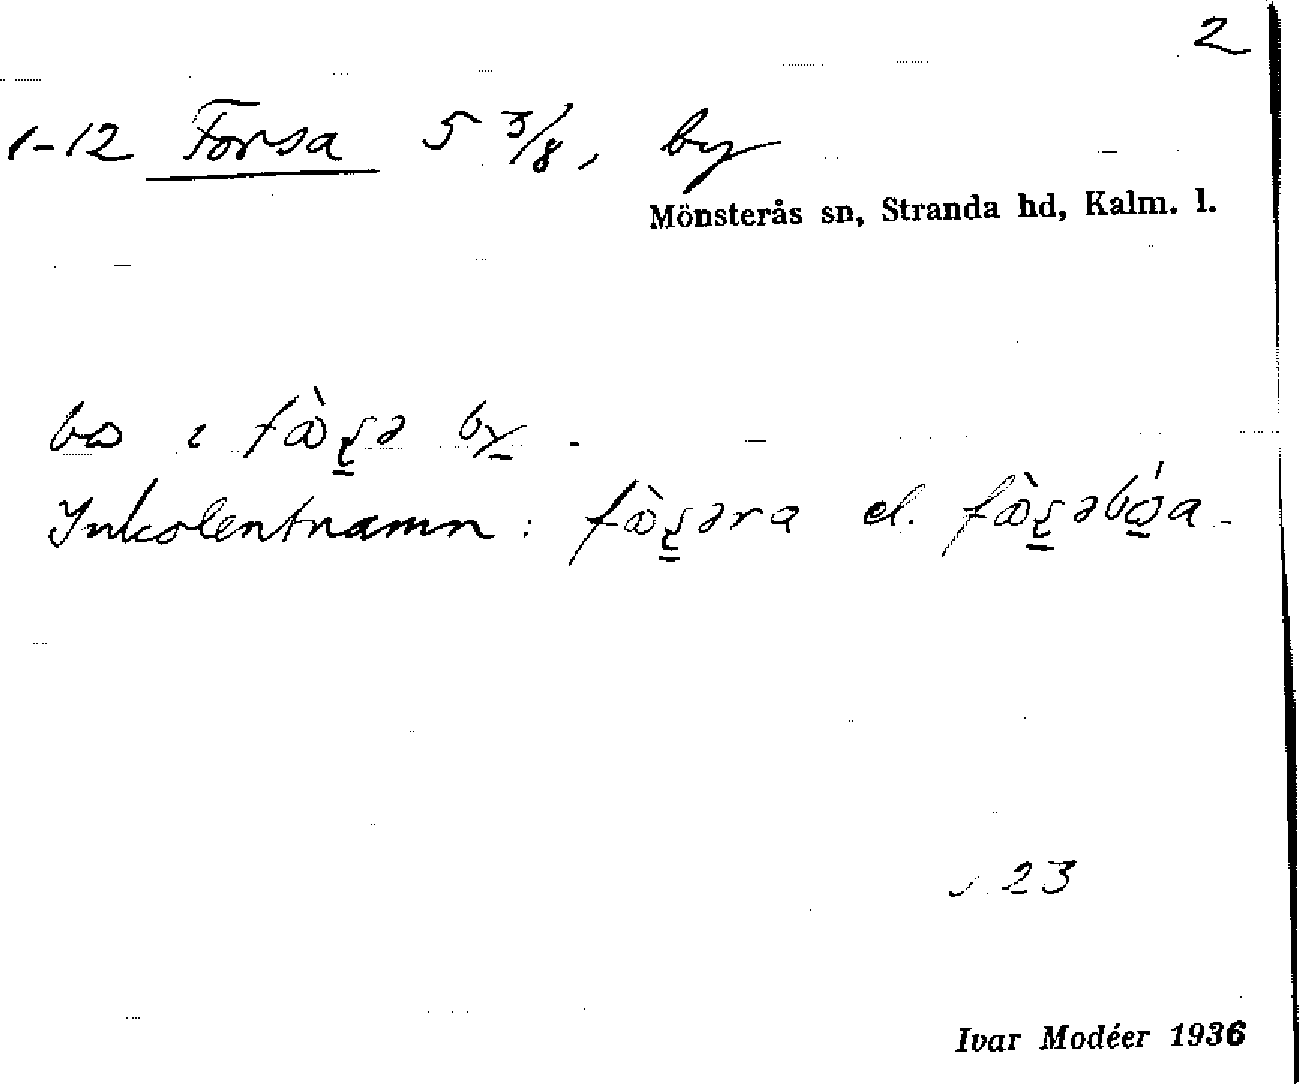 2
1-12 Forsa 5 3/8, by
Mönsterås sn, Stranda hd, Kalm. l.
bo i by -
Inkolentnamn: el.
s. 23
Ivar Modéer 1936